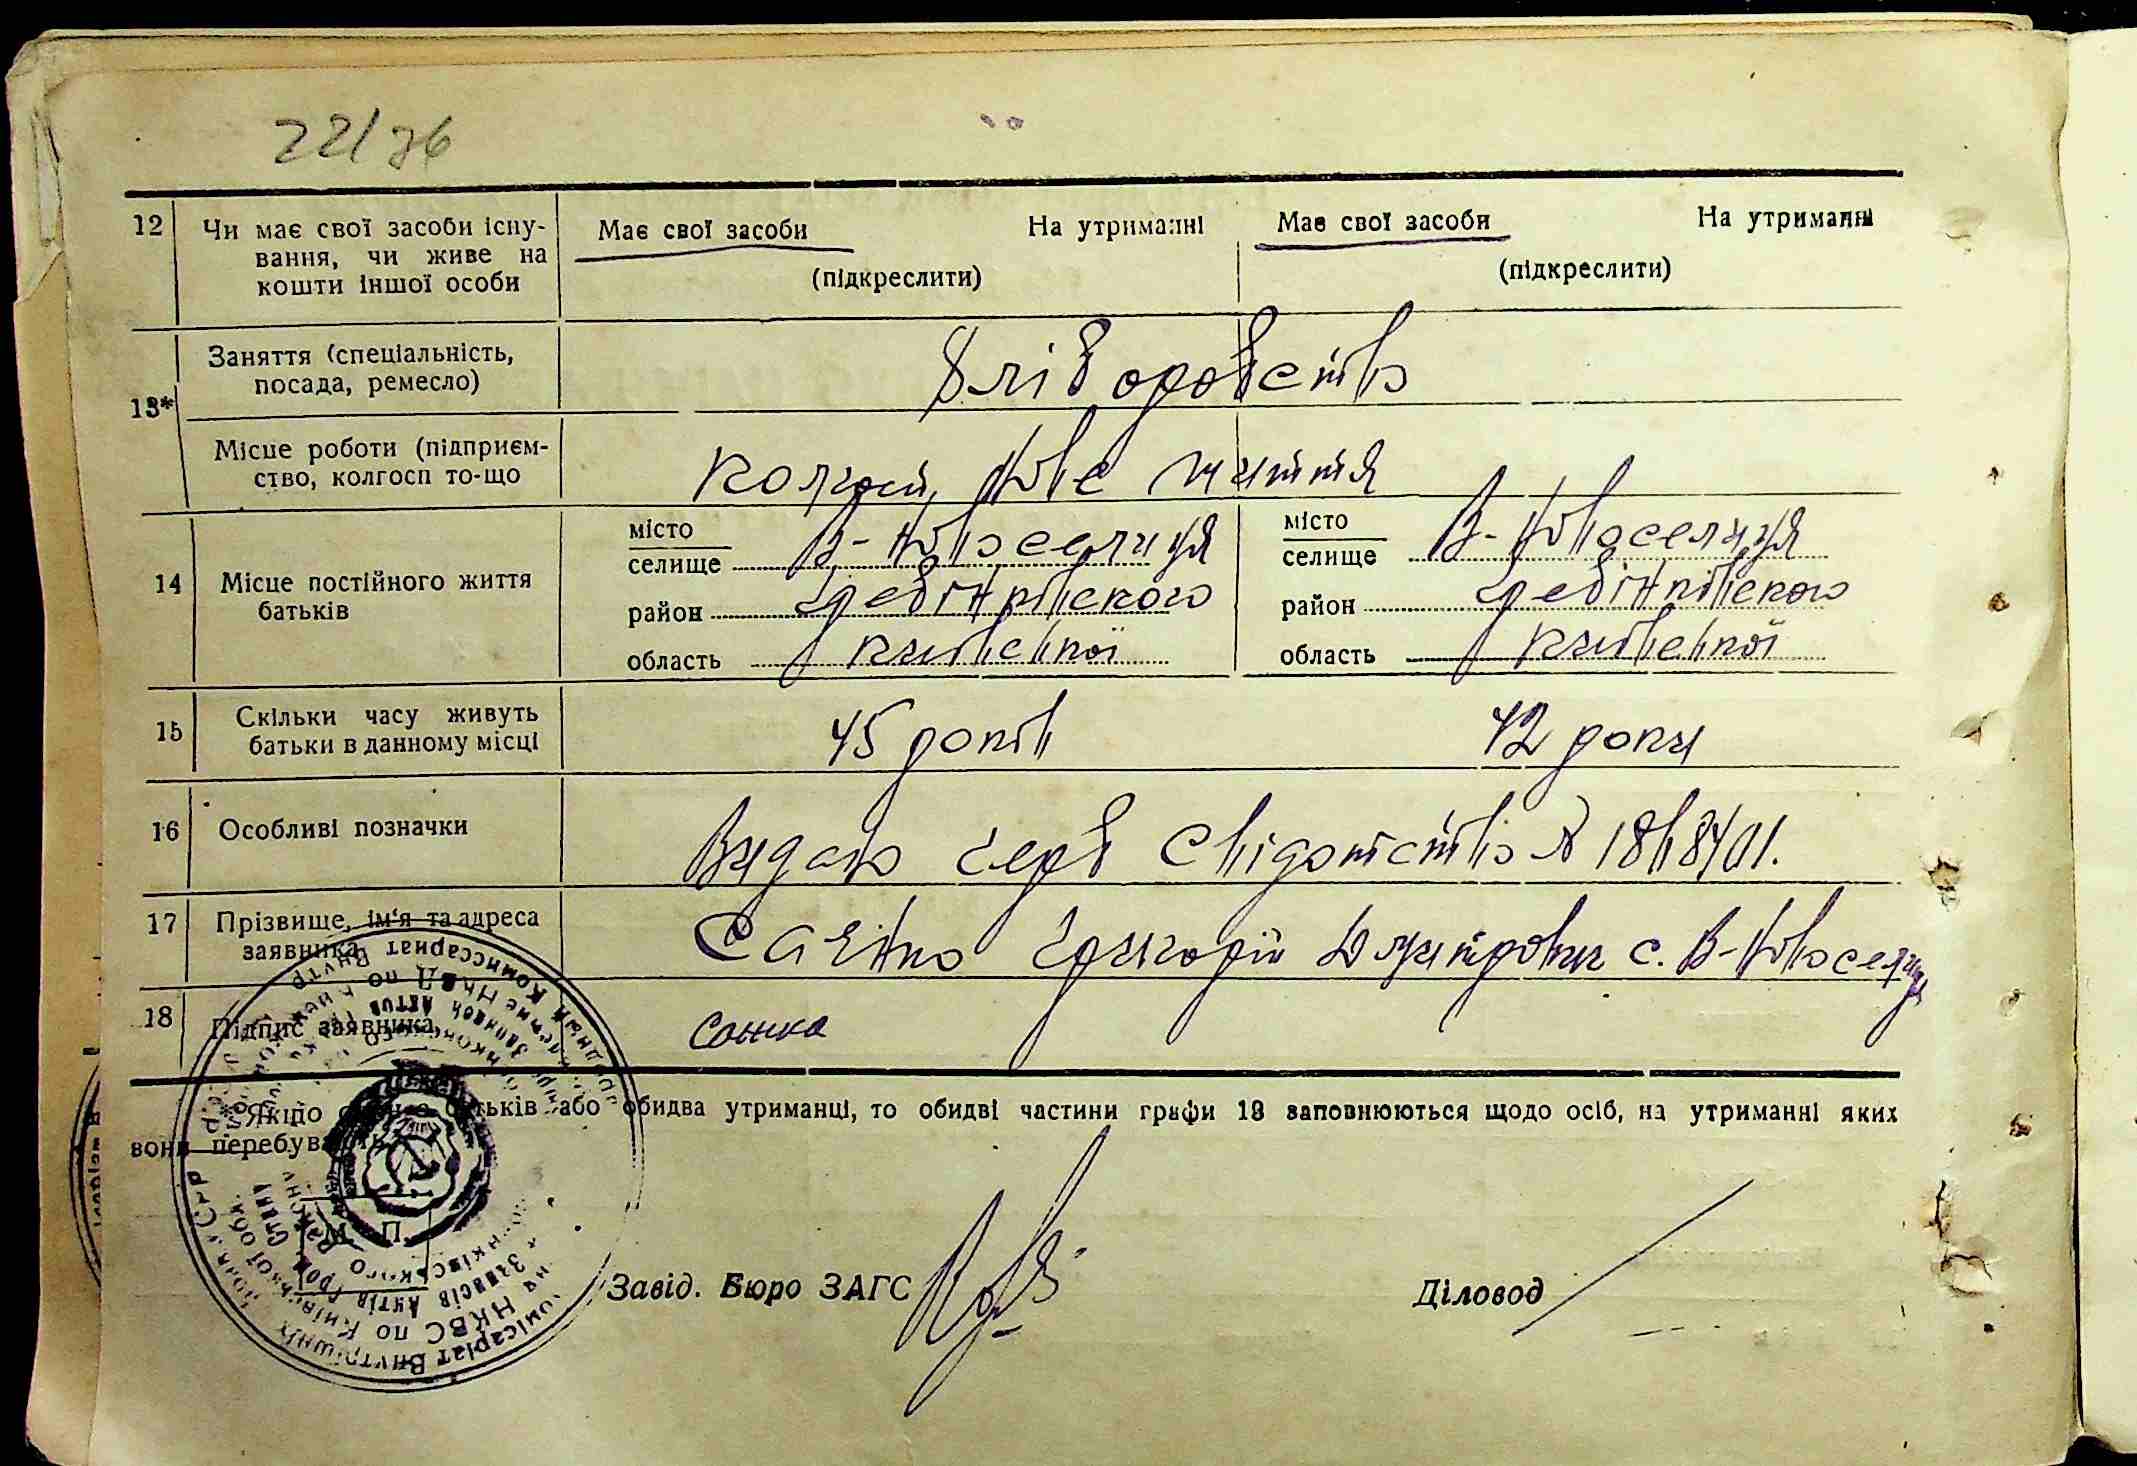 22/36
12 Чи має свої засоби існу-
вання, чи живе на
кошти іншої особи
Має свої засоби На утриманні
(підкреслити)
Має свої засоби На утриманні
(підкреслити)
13*
Заняття (спеціальність,
посада, ремесло)
Хліборобство
Місце роботи (підприєм-
ство, колгосп то-що
колгосп, Нове життя
14 Місце постійного життя
батьків
місто
селище В-Новоселиця
район Гребінківского
область Київської
місто
селище В-Новоселиця
район Гребінківского
область Київської
15 Скільки часу живуть
батьки в данному місці
45 років
42 роки
16 Особливі позначки
Видано серв свідотство №
17 Прізвище, ім'я та адреса
заявника
Григорій Дмитрович с. В-Новоселиця
18 Підпис заявника,
* Якщо батьків або обидва утриманці, то обидві частини графи 13 заповнюються щодо осіб, на утриманні яких
вони перебувають
М. П.
Завід. Бюро ЗАГС
Діловод